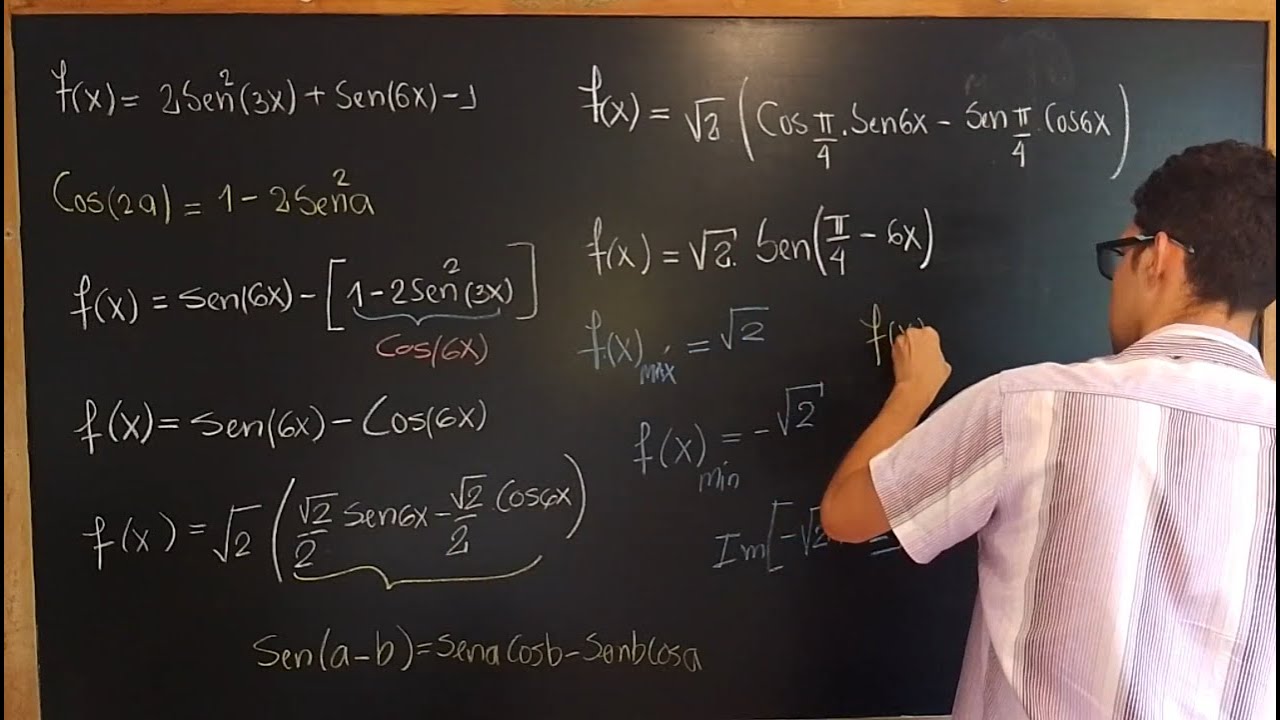 f(x) = 2Sen²(3x) + Sen(6x) - 1
Cos(2a) = 1 - 2Sen²a
f(x) = Sen(6x) - [1 - 2Sen²(3x)]
Cos(6x)
f(x) = Sen(6x) - Cos(6x)
f(x) = √2 (√2/2 Sen6x - √2/2 . Cos6x)
Sen(a-b) = Sena Cosb - Senb Cosa
f(x) = √2 (Cos π/4 . Sen6x - Sen π/4 . Cos6x)
f(x) = √2 . Sen(π/4 - 6x)
f(x) máx = √2
f(x) mín = -√2
Im[-√2
f(x)